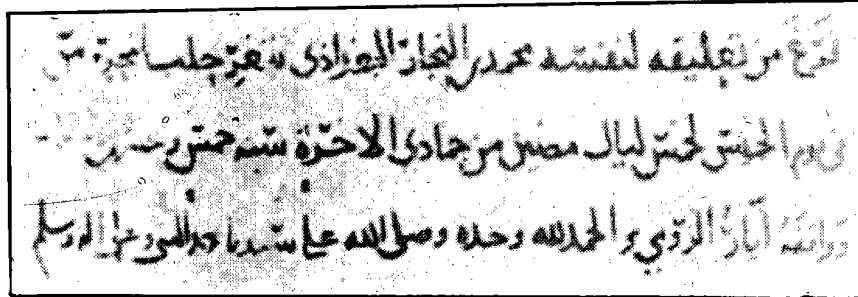 فرغ من تعليقه لنفسه محمد بن النجار البغدادي بثغر حلب
في يوم الخميس لخمس ليال مضين من جمادى الاخرة سنة خمس و
ايار الرومي و الحمد لله وحده وصلى الله على سيدنا محمد النبي وعلى اله وسلم